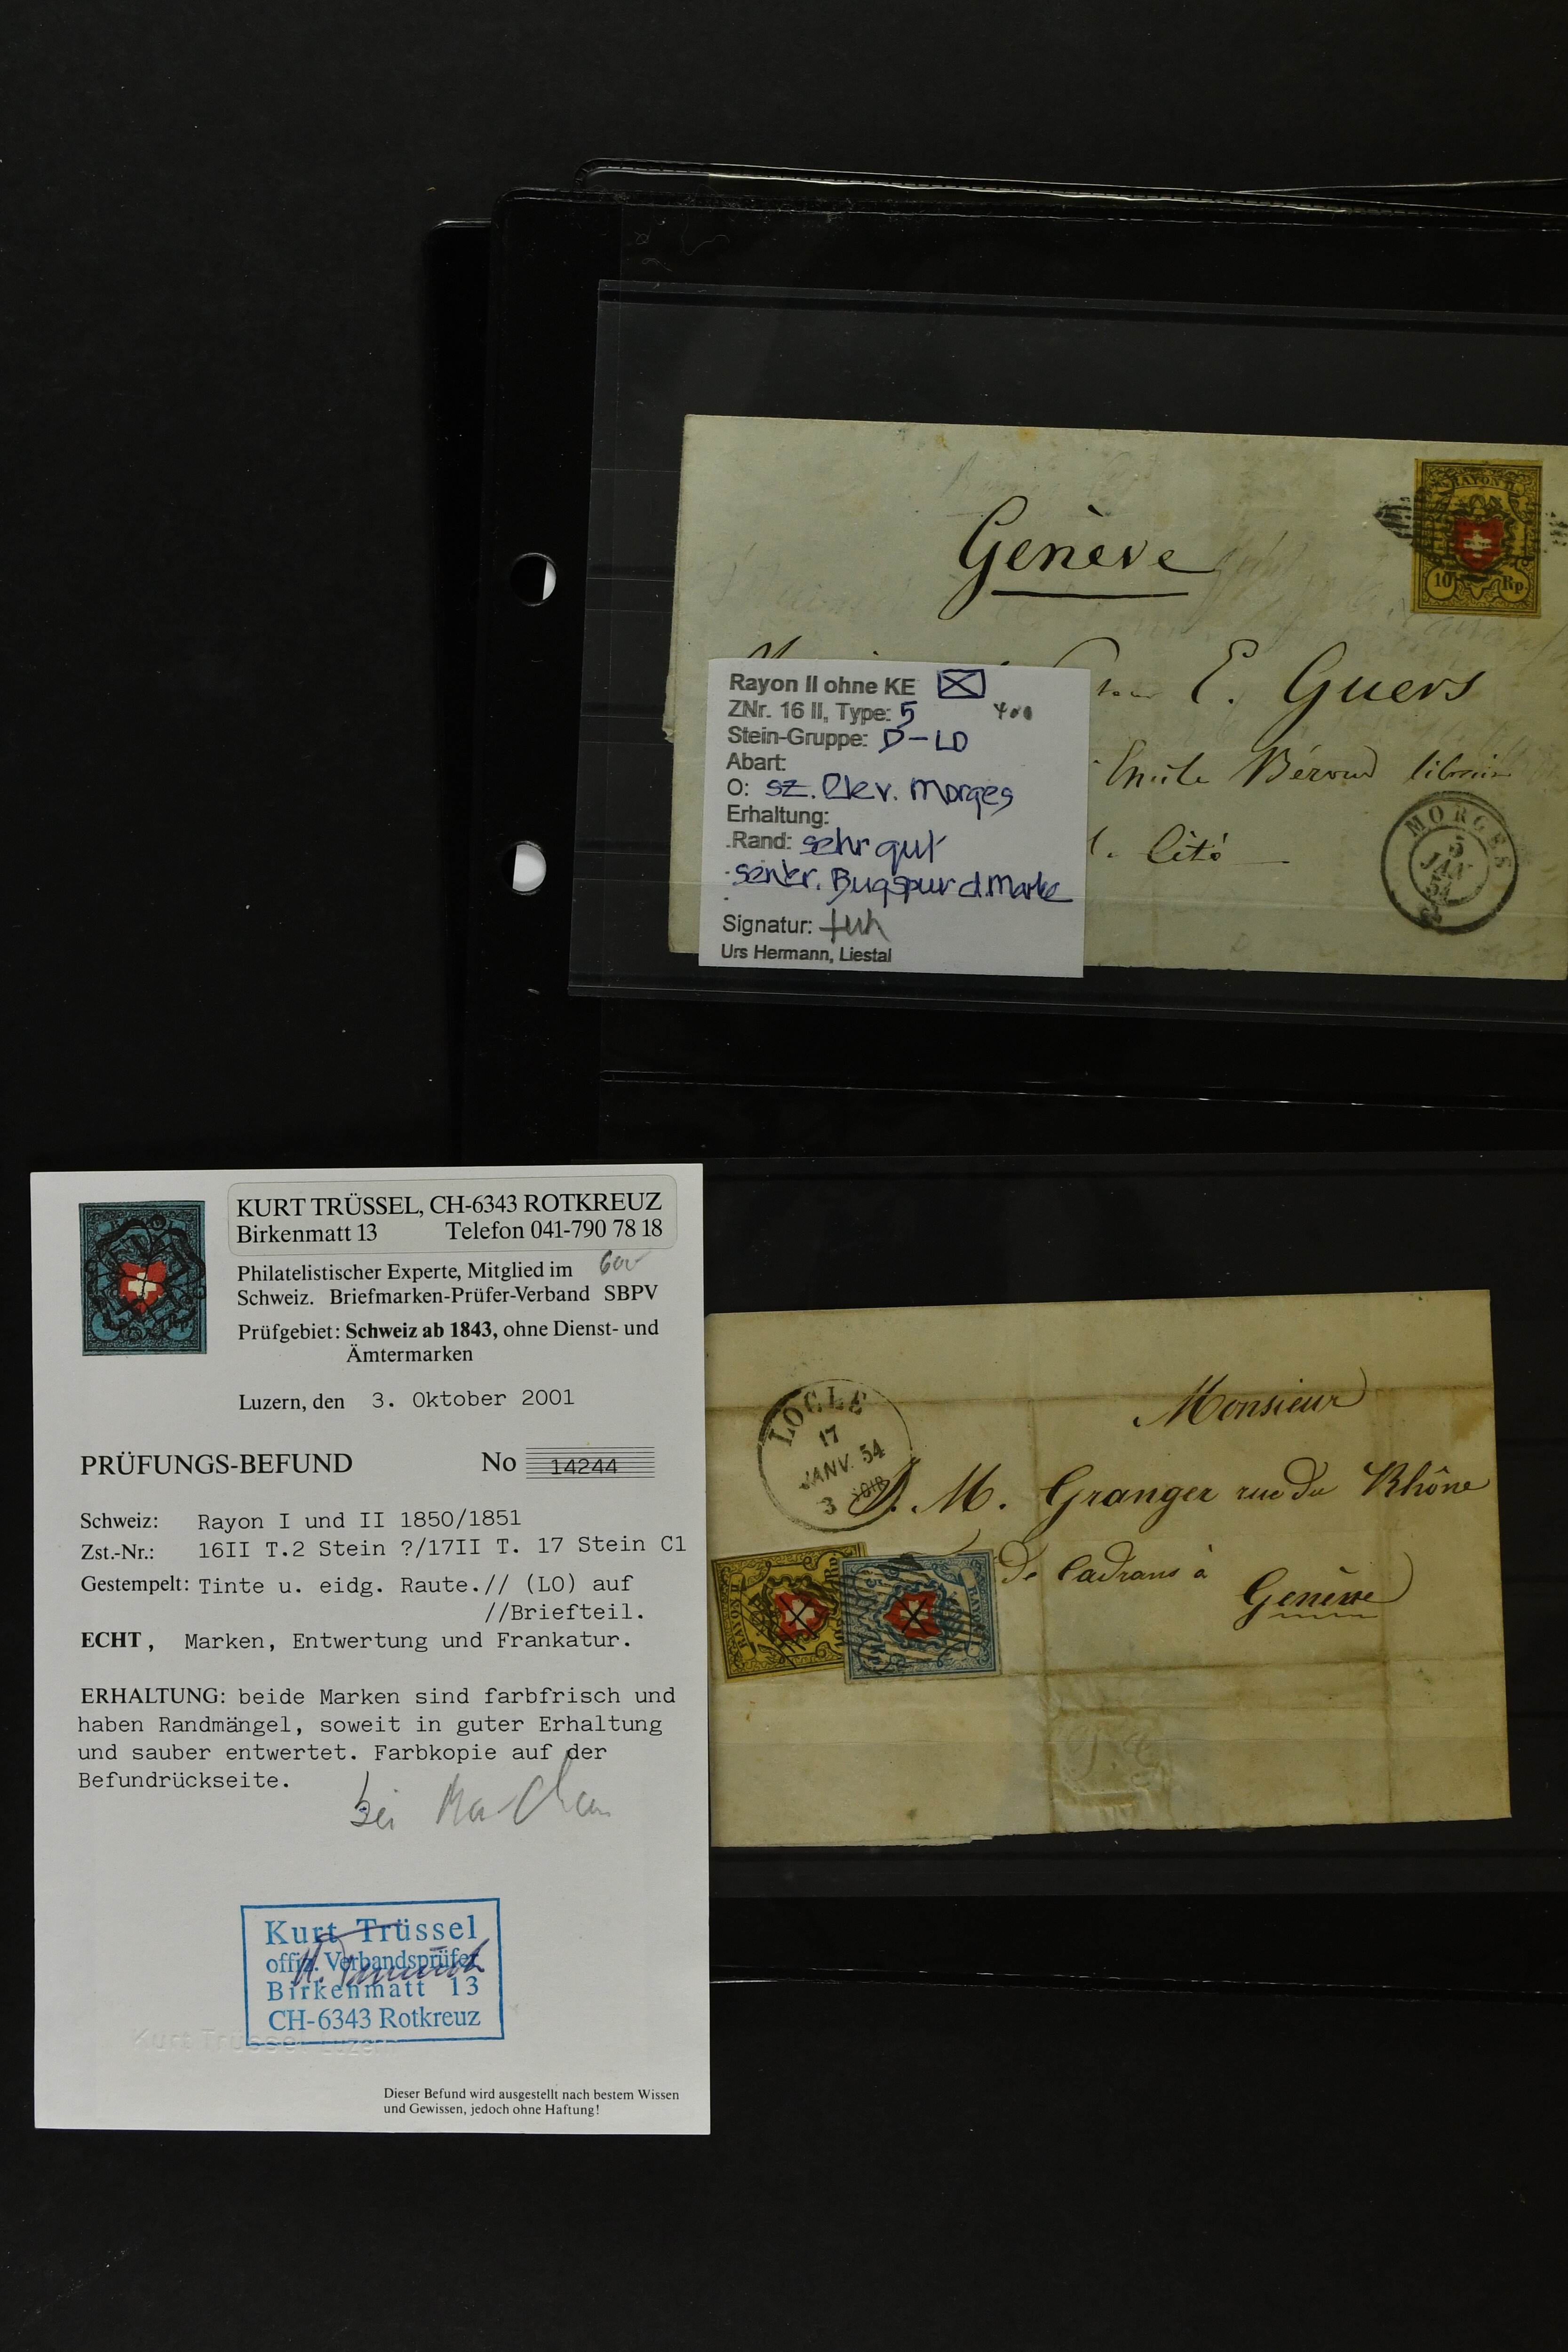 Genève
RAYON II
10 Rp.
E. Guers
Emile Béroud
Cité
MORGES
5
JAN
54
Rayon II ohne KE
400
ZNr. 16 II, Type: 5
Stein-Gruppe: D-LO
Abart:
O: sz. Morges
Erhaltung:
.Rand: sehr gut
Bugspur d. Marke
Signatur:
Urs Hermann, Liestal
KURT TRÜSSEL, CH-6343 ROTKREUZ
Birkenmatt 13 Telefon 041-790 78 18
600
Philatelistischer Experte, Mitglied im
Schweiz. Briefmarken-Prüfer-Verband SBPV
Prüfgebiet: Schweiz ab 1843, ohne Dienst- und
Ämtermarken
Luzern, den 3. Oktober 2001
PRÜFUNGS-BEFUND No 14244
Schweiz: Rayon I und II 1850/1851
Zst.-Nr.: 16II T.2 Stein ?/17II T. 17 Stein C1
Gestempelt: Tinte u. eidg. Raute.// (LO) auf
//Briefteil.
ECHT, Marken, Entwertung und Frankatur.
ERHALTUNG: beide Marken sind farbfrisch und
haben Randmängel, soweit in guter Erhaltung
und sauber entwertet. Farbkopie auf der
Befundrückseite.
bei
Kurt Trüssel
offiz. Verbandsprüfer
Birkenmatt 13
CH-6343 Rotkreuz
Kurt Trüssel Luzern
Dieser Befund wird ausgestellt nach bestem Wissen
und Gewissen, jedoch ohne Haftung!
LOCLE
17
JANV. 54
3 SOIR
Monsieur
M. Granger rue du Rhône
de Cadrans à
Genève
RAYON II
Rp.
RAYON